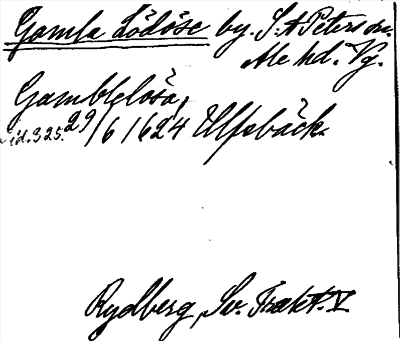 Gamla Lödöse by. S:t Peters sn.
Ale hd. Vg.
Gamblelösa,
sid. 325. 29/6 1624 Ulfsbäck.
Rydberg, Sv. Trakt. V